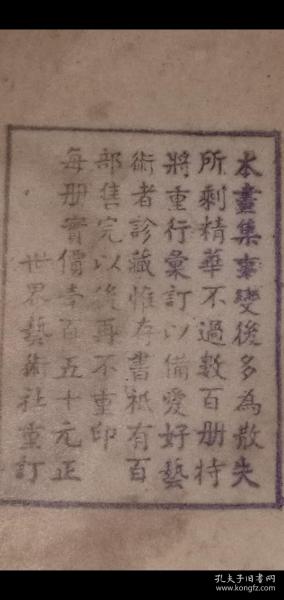 本畫集事變後多為散失
所剩精華不過數百册特
將重行彙訂以備愛好藝
術者診藏惟存書祇有百
部售完以後再不重印
每册實價壹百五十元正
世界藝術社重訂
孔夫子旧书网
www.kongfz.com